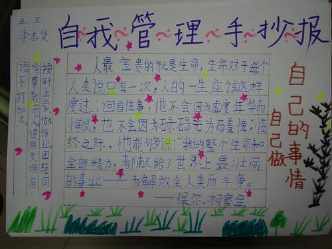 自我管理手抄报
人最宝贵的就是生命,生命对于每个
人类只有一次,人的一生应该这样
度过:回首往事,他不会因为虚度年华而
悔恨,也不会因为碌碌无为而羞愧;临
终之际,他都能够说:我的整个生命和
全部精力,都献给了世界上最壮丽
的事业——为解放全人类而斗争。
——保尔·柯察金
自己的事情
自己做